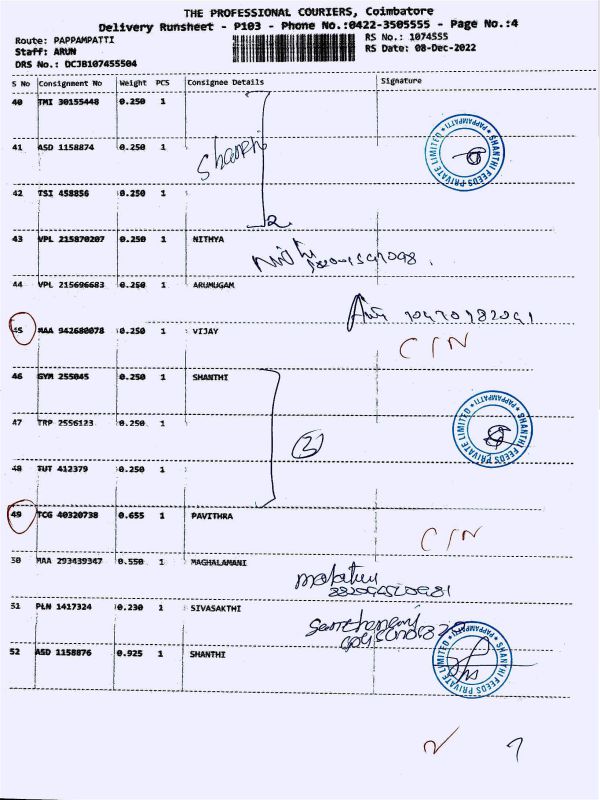 THE PROFESSIONAL COURIERS, Coimbatore
Delivery Runsheet - P103 - Phone No.:0422-3505555 - Page No.:4
Route: PAPPAMPATTI
RS No.: 1074555
Staff: ARUN
RS Date: 08-Dec-2022
DRS No.: DCJB107455504
S No Consignment No Weight PCS Consignee Details Signature
40 TMI 30155448 0.250 1
41 ASD 1158874 0.250 1
SHANTHI FEEDS PRIVATE LIMITED * PAPPAMPATTI *
42 TSI 458856 0.250 1
2
43 VPL 215870207 0.250 1 NITHYA
44 VPL 215696683 0.250 1 ARUMUGAM
45 MAA 942680078 0.250 1 VIJAY
C/N
46 GYM 255045 0.250 1 SHANTHI
47 TRP 2556123 0.250 1
3
SHANTHI FEEDS PRIVATE LIMITED * PAPPAMPATTI *
48 TUT 412379 0.250 1
49 TCG 40320738 0.655 1 PAVITHRA
C/N
50 MAA 293439347 0.550 1 MAGHALAMANI
51 PLN 1417324 0.230 1 SIVASAKTHI
52 ASD 1158876 0.925 1 SHANTHI
SHANTHI FEEDS PRIVATE LIMITED * PAPPAMPATTI *